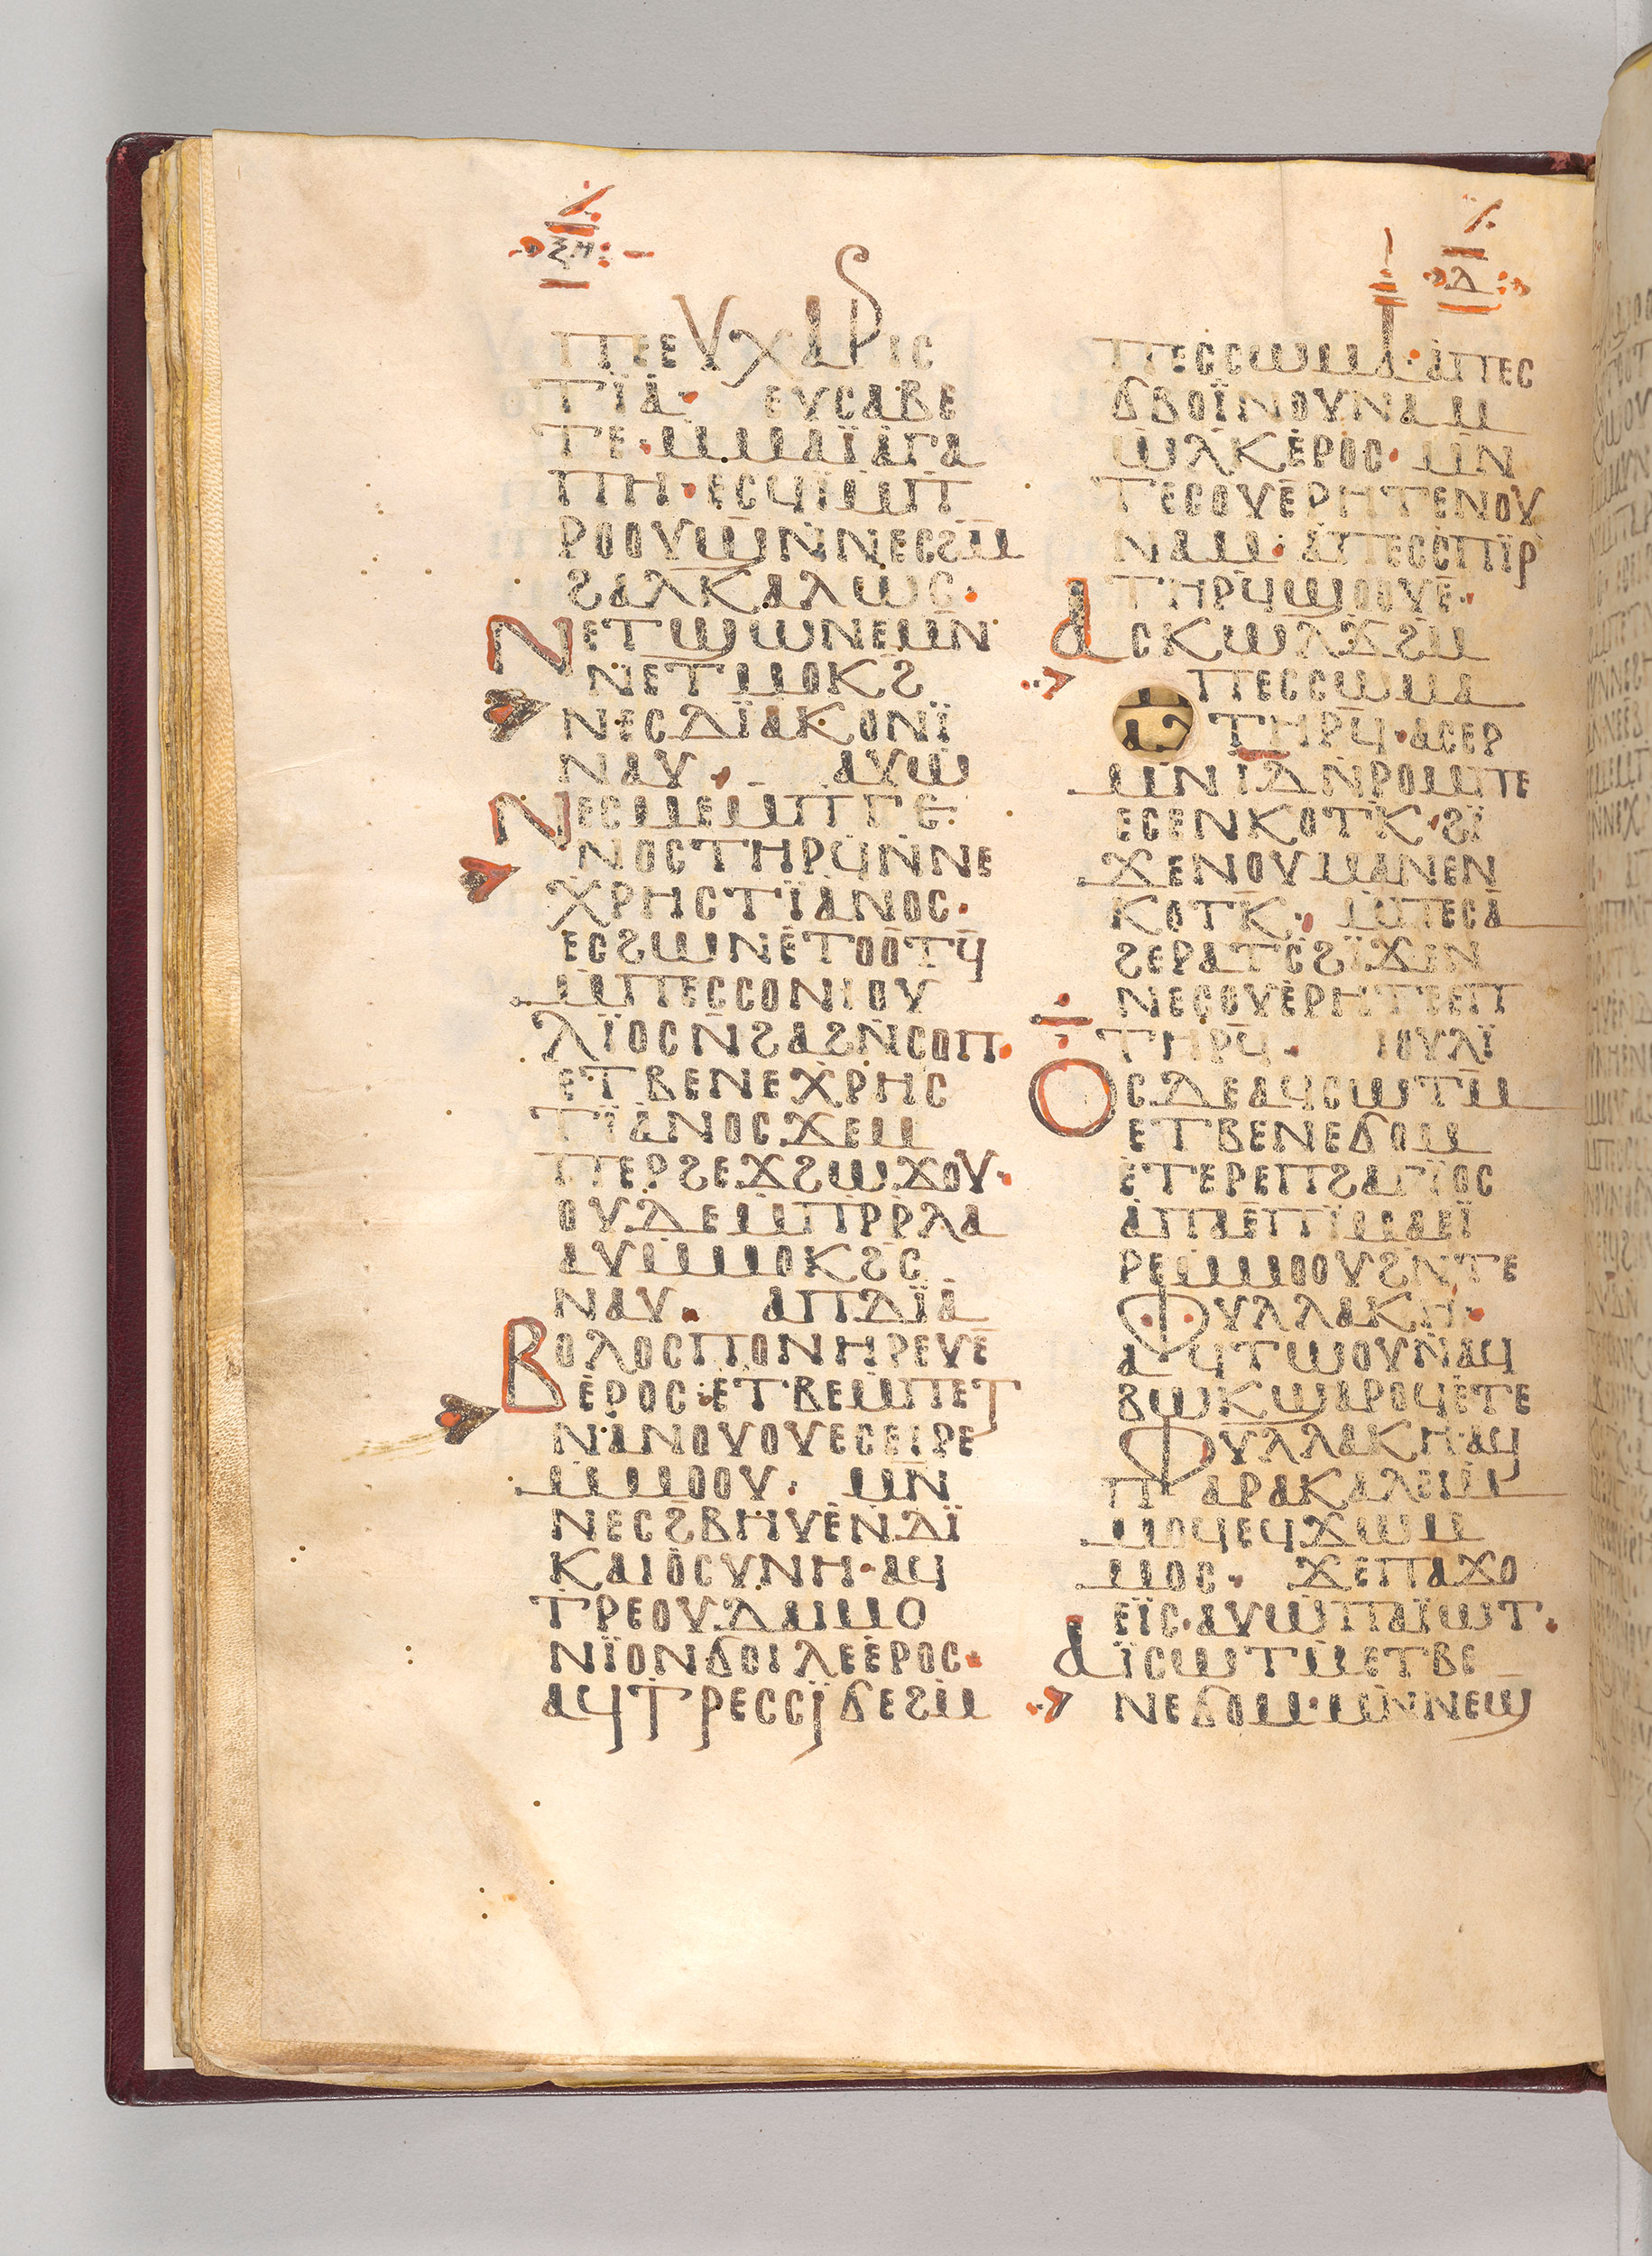 ⲝⲏ
ⲇ
ⲡⲉⲉⲩⲭⲁⲣⲓⲥ
ⲧⲓ̈ⲁ· ⲉⲩⲥⲁⲃⲉ
ⲧⲉ·ⲙ̀ⲙⲁⲓ̈ⲁⲅⲁ
ⲡⲏ·ⲉⲥϥⲓ̈ⲙ̀ⲡ
ⲣⲟⲟⲩϣⲛ̀ⲛⲉⲥϩⲙ̄
ϩⲁⲗⲕⲁⲗⲱⲥ·
ⲛⲉⲧϣⲱⲛⲉⲙⲛ̄
ⲛⲉⲧⲙⲟⲕϩ
ⲛⲉⲥⲇⲓ̈ⲁⲕⲟⲛⲓ̈
ⲛⲁⲩ· ⲁⲩⲱ
ⲛⲉⲥⲙⲉⲙ̀ⲡⲅⲉ
ⲛⲟⲥⲧⲏⲣϥⲛ̀ⲛⲉ
ⲭⲣⲏⲥⲧⲓ̈ⲁⲛⲟⲥ·
ⲉⲥϩⲱⲛⲉ̀ⲧⲟⲟⲧϥ
ⲙ̀ⲡⲉⲥⲥⲟⲛⲓⲟⲩ
ⲗⲓ̈ⲟⲥⲛ̄ϩⲁϩⲛ̄ⲥⲟⲡ·
ⲉⲧⲃⲉⲛⲉⲭⲣⲏⲥ
ⲧⲓ̈ⲁⲛⲟⲥϫⲉⲙ
ⲡⲉⲣϩⲉϫϩⲱϫⲟⲩ·
ⲟⲩⲇⲉⲙ̀ⲡⲣ̄ⲣ̄ⲗⲁ
ⲁⲩⲙ̀ⲙⲟⲕϩⲥ̄
ⲛⲁⲩ· ⲁⲡⲇⲓ̈ⲁ
ⲃⲟⲗⲟⲥⲡⲟⲛⲏⲣⲉⲩⲉ
ⲉ̀ⲣⲟⲥ·ⲉⲧⲃⲉⲙ̀ⲡⲉⲧ
ⲛⲁⲛⲟⲩⲟⲩⲉⲥⲉⲓⲣⲉ
ⲙ̀ⲙⲟⲟⲩ· ⲙⲛ̄
ⲛⲉⲥϩⲃⲏⲩⲉ̀ⲛ̀ⲇⲓ̈
ⲕⲁⲓⲟⲥⲩⲛⲏ·ⲁϥ
ⲧⲣⲉⲟⲩⲇⲁⲓⲙⲟ
ⲛⲓ̈ⲟⲛϭⲟⲓⲗⲉⲉ̀ⲣⲟⲥ·
ⲁϥⲧⲣⲉⲥⲥⲓ̈ϭⲉϩⲙ̄
ⲡⲉⲥⲥⲱⲙⲁ·ⲁ̀ⲡⲉⲥ
ϭⲃⲟⲓ̈ⲛⲟⲩⲛⲁⲙ
ϣⲗ̄ⲕⲉ̀ⲣⲟⲥ·ⲙⲛ̄
ⲧⲉⲥⲟⲩⲉ̀ⲣⲏⲧⲉⲛⲟⲩ
ⲛⲁⲙ·ⲁ̀ⲡⲉⲥⲥⲡⲓ̈ⲣ
ⲧⲏⲣϥ̄ϣⲟⲟⲩⲉ̀·
ⲁⲥⲕⲱⲗϫ̄ϩⲙ̄
ⲡⲉⲥⲥⲱⲙⲁ
ⲧⲏⲣϥ̄·ⲁⲥⲉⲣ
ⲙⲛ̄ⲓ̄ⲇ̄ⲛ̀ⲣⲟⲙⲡⲉ
ⲉⲥⲉⲛⲕⲟⲧⲕ̄·ϩⲓ̈
ϫⲉⲛⲟⲩⲙⲁⲛⲉⲛ
ⲕⲟⲧⲕ̄· ⲙ̀ⲡⲉⲥⲁ
ϩⲉⲣⲁⲧⲥ̀ϩⲓ̈ϫⲉⲛ
ⲛⲉⲥⲟⲩⲉ̀ⲣⲏⲧⲉⲉⲡ
ⲧⲏⲣϥ̄· ⲓⲟⲩⲗⲓ̈
ⲟⲥⲇⲉⲁϥⲥⲱⲧⲙ̄
ⲉⲧⲃⲉⲛⲉϭⲟⲙ
ⲉ̀ⲧⲉⲣⲉⲡϩⲁⲅⲓ̈ⲟⲥ
ⲁ̀ⲡⲁⲉⲡⲓ̈ⲙⲁⲉⲓ̈
ⲣⲉⲙ̀ⲙⲟⲟⲩϩⲛ̄ⲧⲉ
ⲫⲩⲗⲗⲁⲕⲏ·
ⲁϥⲧⲱⲟⲩⲛ̀ⲁϥ
ⲃⲱⲕϣⲁⲣⲟϥⲉ̀ⲧⲉ
ⲫⲩⲗⲗⲁⲕⲏ·ⲁϥ
ⲡⲁⲣⲁⲕⲁⲗⲉⲓⲙ̀
ⲙⲟϥⲉϥϫⲱⲙ̀
ⲙⲟⲥ· ϫⲉⲡⲁϫⲟ
ⲉⲓ̈ⲥ·ⲁⲩⲱⲡⲁⲓ̈ⲱⲧ·
ⲁⲓ̈ⲥⲱⲧⲙ̀ⲉⲧⲃⲉ
ⲛⲉϭⲟⲙ·ⲙⲛ̄ⲛⲉϣ